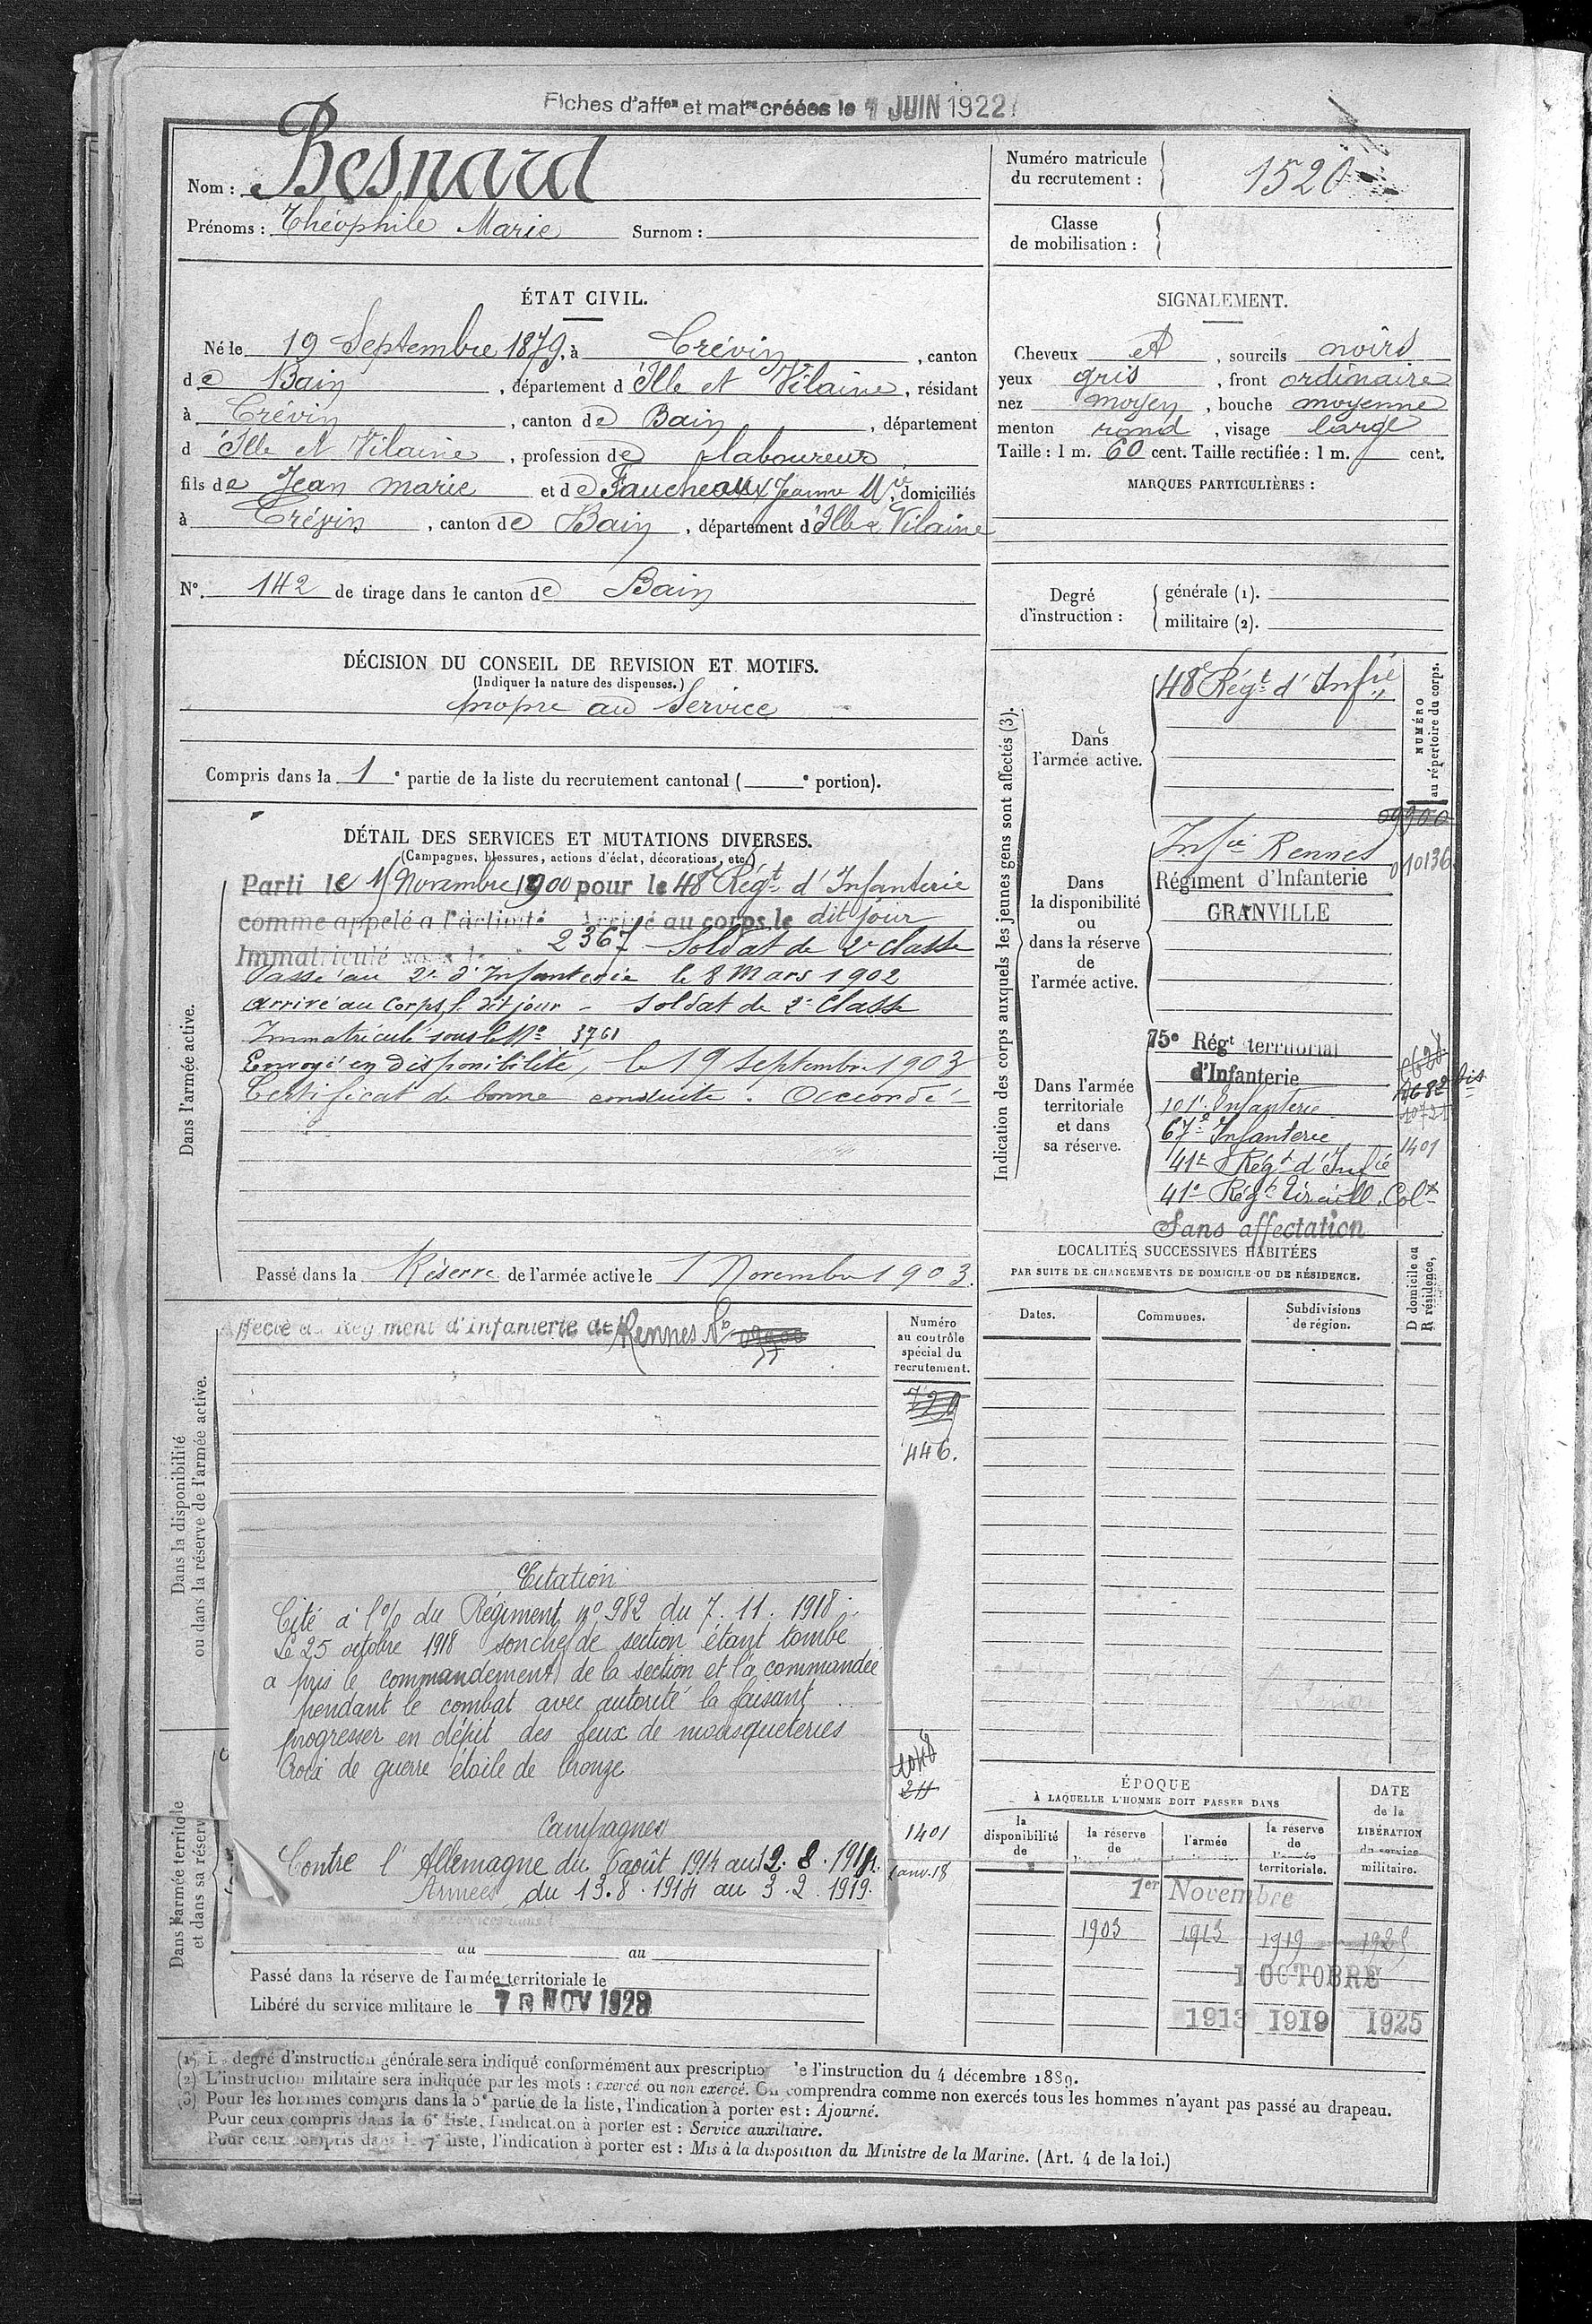 Fiches d'affon et matre créées le 7 JUIN 1922
Nom : Besnard
Prénoms : Théophile Marie Surnom :
Numéro matricule
du recrutement : 1520
Classe
de mobilisation :
ÉTAT CIVIL.
Né le 19 Septembre 1879, à Crévin, canton
de Bain, département d'Ille et Vilaine, résidant
à Crévin, canton de Bain, département
d Ille et Vilaine, profession de laboureur
fils de Jean Marie et de Faucheoux Jeanne Mie, domiciliés
à Crévin, canton de Bain, département d'Ille & Vilaine
N° 142 de tirage dans le canton de Bain
SIGNALEMENT.
Cheveux et, sourcils noirs
yeux gris, front ordinaire
nez moyen, bouche moyenne
menton rond, visage large
Taille : 1 m. 60 cent. Taille rectifiée : 1 m. cent.
MARQUES PARTICULIÈRES :
Degré
d'instruction :
générale (1).
militaire (2).
DÉCISION DU CONSEIL DE REVISION ET MOTIFS.
(Indiquer la nature des dispenses.)
propre au Service
Compris dans la 1e partie de la liste du recrutement cantonal ( e portion).
DÉTAIL DES SERVICES ET MUTATIONS DIVERSES.
(Campagnes, blessures, actions d'éclat, décorations, etc.)
Dans l'armée active.
Parti le 15 Novembre 1900 pour le 48e Régt d'Infanterie
comme appelé à l'activité Arrivé au corps le dit jour
Immatriculé sous le 2367 Soldat de 2e classe
Passé au 2e d'Infanterie le 8 Mars 1902
arrivé au Corps l. dit jour - soldat de 2e Classe
Immatriculé sous le No 3761
Envoyé en disponibilité, le 19 septembre 1903
Certificat de bonne conduite : Accordé
Passé dans la Réserve de l'armée active le 1 Novembre 1903.
Indication des corps auxquels les jeunes gens sont affectés (3).
NUMÉRO
au répertoire du corps.
Dans
l'armée active.
48e Régt d'Infie
09900
Dans
la disponibilité
ou
dans la réserve
de
l'armée active.
Infie Rennes
010136
Régiment d'Infanterie
GRANVILLE
Dans l'armée
territoriale
et dans
sa réserve.
75e Régt territorial
d'Infanterie
101e Infanterie
67e Infanterie
1401
41e Régt d'Infie
41e Régt Tiraill. Colx
Sans affectation
LOCALITÉS SUCCESSIVES HABITÉES
PAR SUITE DE CHANGEMENTS DE DOMICILE OU DE RÉSIDENCE.
Dates.
Communes.
Subdivisions
de région.
D domicile ou
R résidence.
Dans la disponibilité
ou dans la réserve de l'armée active.
Affecté au Régiment d'Infanterie de Rennes No 09900
Numéro
au contrôle
spécial du
recrutement.
446.
Citation
Cité à l'o/o du Régiment no 982 du 7.11.1918.
Le 25 octobre 1918 son chef de section étant tombé
a pris le commandement de la section et l'a commandée
pendant le combat avec autorité la faisant
progresser en dépit des feux de mousqueteries
Croix de guerre étoile de bronze
Campagnes
Contre l'Allemagne du 6 août 1914 au 12.8.1914.
Armées du 13.8.1914 au 3.2.1919.
1401
Janv. 18
Dans l'armée territoriale
et dans sa réserve
au au
Passé dans la réserve de l'armée territoriale le
Libéré du service militaire le NOV 1928
ÉPOQUE
À LAQUELLE L'HOMME DOIT PASSER DANS
la
disponibilité
de
la réserve
de
l'armée
la réserve
de
l'armée
territoriale.
DATE
de la
LIBÉRATION
du service
militaire.
1er Novembre
1903 1913 1919 1925
1 OCTOBRE
1913 1919 1925
(1) Le degré d'instruction générale sera indiqué conformément aux prescriptio e l'instruction du 4 décembre 1889.
(2) L'instruction militaire sera indiquée par les mots : exercé ou non exercé. On comprendra comme non exercés tous les hommes n'ayant pas passé au drapeau.
(3) Pour les hommes compris dans la 5e partie de la liste, l'indication à porter est : Ajourné.
Pour ceux compris dans la 6e liste, l'indication à porter est : Service auxiliaire.
Pour ceux compris dans la 7e liste, l'indication à porter est : Mis à la disposition du Ministre de la Marine. (Art. 4 de la loi.)